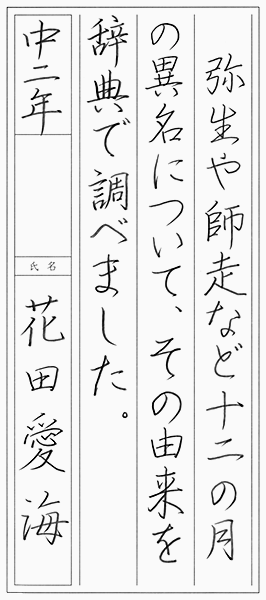 弥生や師走など十二の月
の異名について、その由来を
辞典で調べました。
中二年
氏名
花田愛海